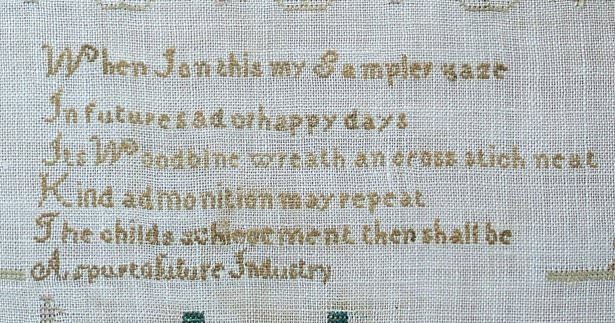 When I on this my Sampler gaze
In future sad or happy days
Its Woodbine wreath an cross stich neat
Kind admonition may repeat
The childs achievement then shall be
A spur to future Industry